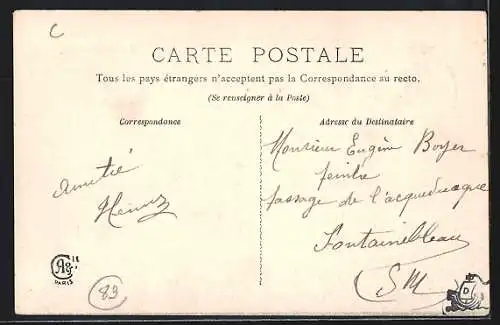 C
CARTE POSTALE
Tous les pays étrangers n'acceptent pas la Correspondance au recto.
(Se renseigner à la Poste)
Correspondance
Amitié
Henry
Adresse du Destinataire
Monsieur Eugène Boyer
peintre
passage de l'acqueducque
Fontainebleau
S M
PARIS
83
D